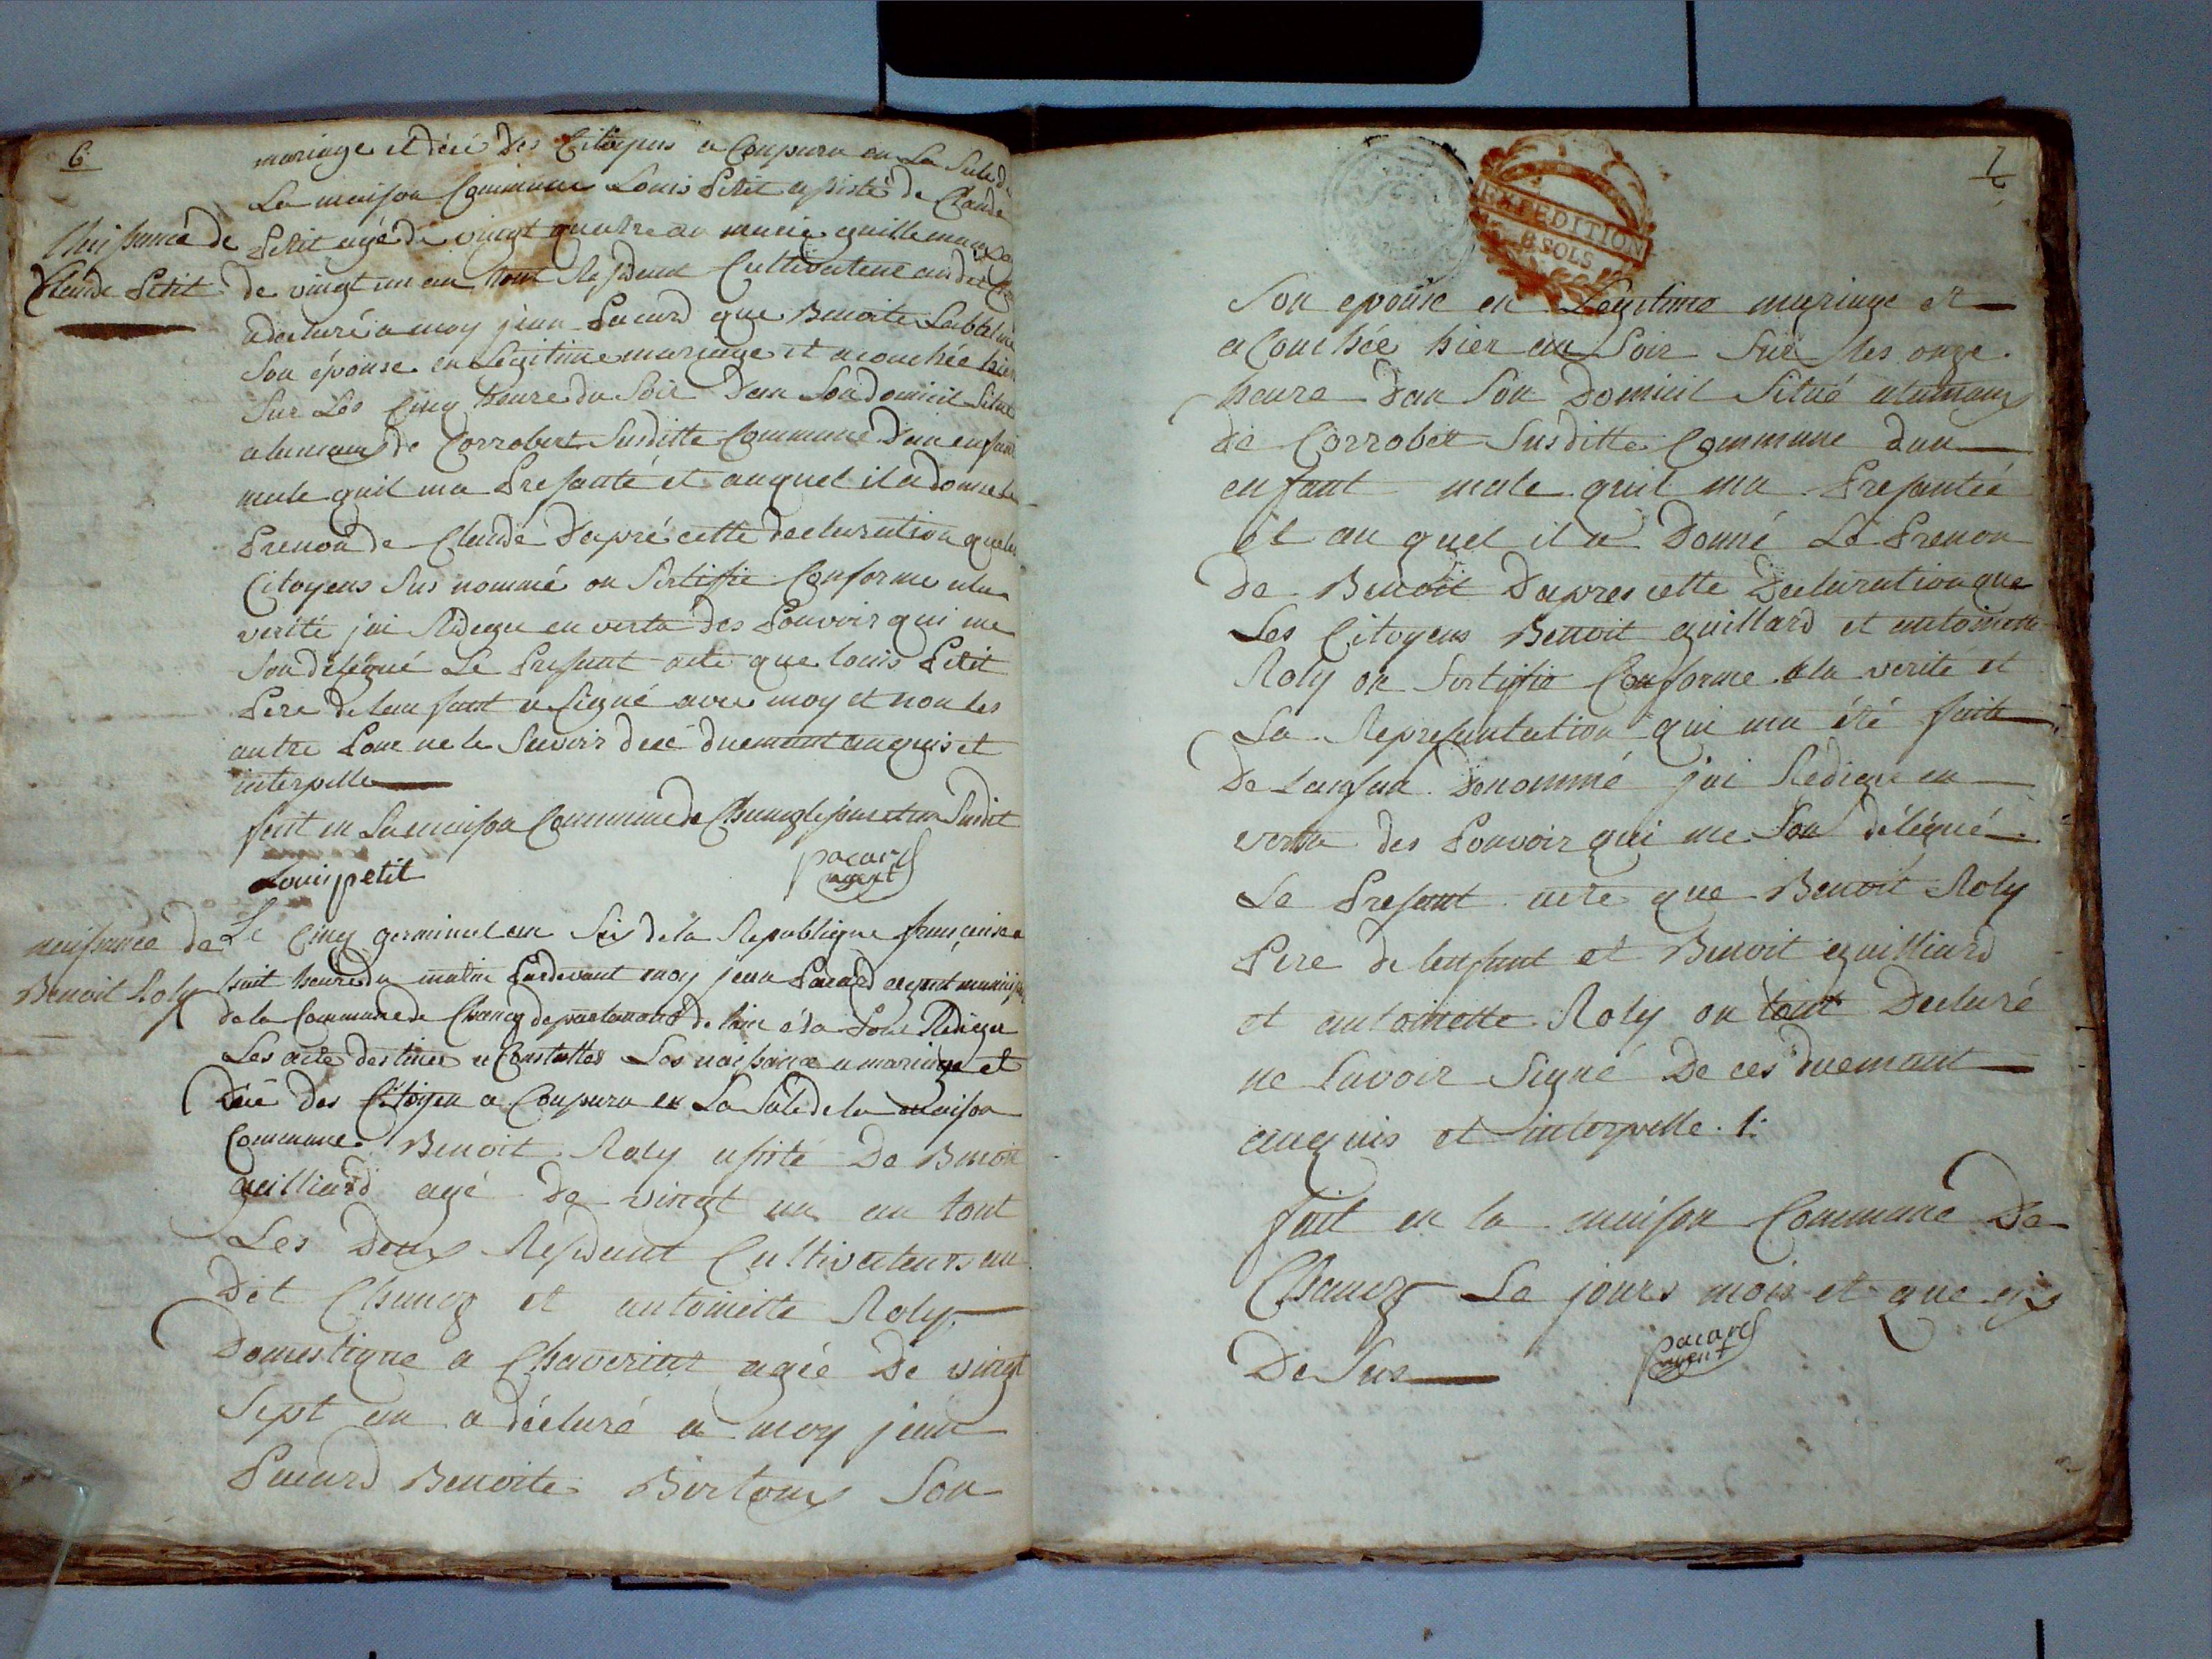 6
mariage et décé des Citoyens a Conpuru en La Sale de
La maison Commune Louis Petit asisté de Claude
Naissance de
Claude Petit
Petit agé de vingt quatre an marie guillemaux
de vingt un an tout Residant Cultivateur audit
a declaré a moy jean Pacard que Benoite
Son épouse en Legitime mariage et acouchée hier
Sur Les Cinq heure du Soir dan Son domicil Situé
a lumeaux de Corrobert Susditte Commune dun enfant
male quil ma Presanté et auquel il a donné le
Prenon de Claude dapré cette declaration que les
Citoyens Sus nommé on Sertifie Conforme a la
verité jai Redegee en vertu des Pouvoir qui me
Son délégué Le Presant acte que louis Petit
Pere de lanfant a Signé avec moy et non les
autre Pour ne le Savoir decé duemant anquis et
interpelle
fait en La maison Commune de Chancg le jour et an Susdit
Louis petit
pacard
agent
naissance de
Benoit Roly
Le Cinq germinal an Six de la Republique françaisea
huit heure du matin Pardevant moy jean Pacard agent municipal
de la Commune de Chancg departemant de lain élu Pour Rediger
Les acte destinee a Constattes Les naissance a mariage et
décé des Citoyen a Conpuru en La Sale de la maison
Commune Benoit Roly asisté De Benoit
guilliard agé De vingt un an tout
Les Deux Residant Cultivateurs au
Dit Chancg et antoinette Roly
Domestique a Chaveriat agée De vingt
Sept an a déclaré a moy jean
Pacard Benoite Birtoux Son
7
EXPEDITION
SOLS
Son epouse en Legitime mariage et
a Couchée hier au Soir Sur les onze
heure dan Son Domicil Situé a lumeaux
de Corrobet Susditte Commune dun
enfant male quil ma Presantée
et au quel il a Donné Le Prenon
de Benoit Dapres cette Declaration que
Les Citoyens Benoit guillard et antoinette
Roly on Sertifié Conforme a la verité et
La Representation qui ma été faite
De lanfan Denommé jai Redigee en
vertu des Pouvoir qui me Son délégué
Le Presant acte que Benoit Roly
Pere de lenfant et Benoit guilliard
et antoinette Roly on tout Declaré
ne Savoir Signé De ces duemant
anquis et interpelle .1.
fait en la maison Commune De
Chancg Le jours mois et que
De Sus
pacard
agent